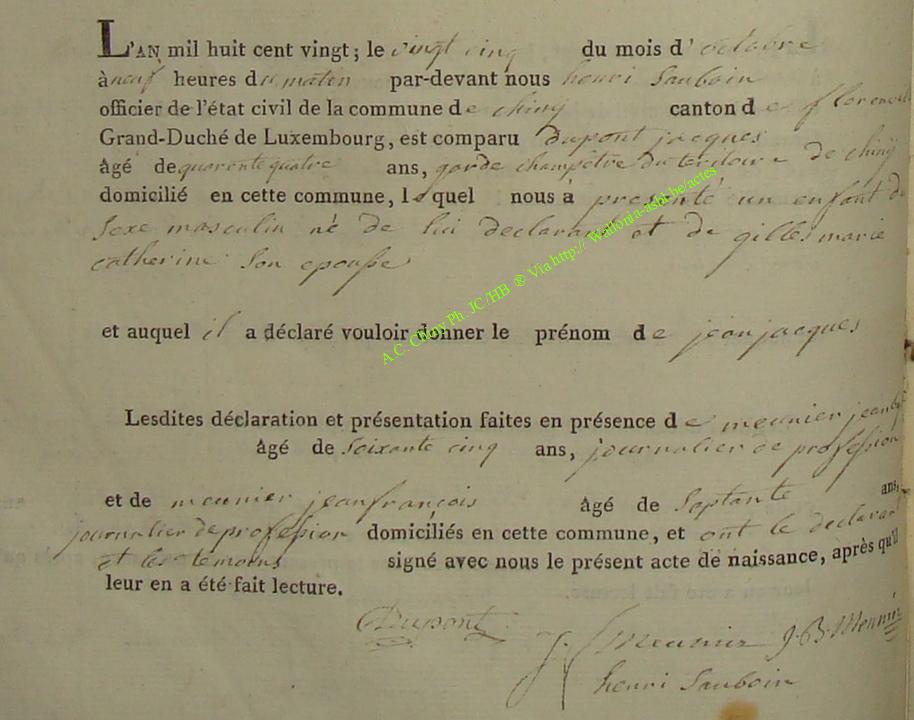 L'AN mil huit cent vingt ; le vingt cinq du mois d' octobre
à neuf heures du matin par-devant nous henri Sauboin
officier de l'état civil de la commune de chiny canton de florenville
Grand-Duché de Luxembourg, est comparu dupont jacques
âgé de quarente quatre ans, garde champetre du teritoire de chiny
domicilié en cette commune, lequel nous a presenté un enfant du
Sexe masculin né de lui declarant et de gilles marie
catherine Son epousse
et auquel il a déclaré vouloir donner le prénom de jean jacques
Lesdites déclaration et présentation faites en présence de meunier jean
âgé de Soixante cinq ans, journalier de profession
et de meunier jeanfrançois âgé de Septante ans,
journalier de profession domiciliés en cette commune, et ont le declarant
et les temoins signé avec nous le présent acte de naissance, après qu'il
leur en a été fait lecture.
Dupont
J f Meunier J-B-Meunier
henri Sauboin
A.C. Chiny Ph. JC/HB ® Via http:// Wallonia-asbl.be/actes